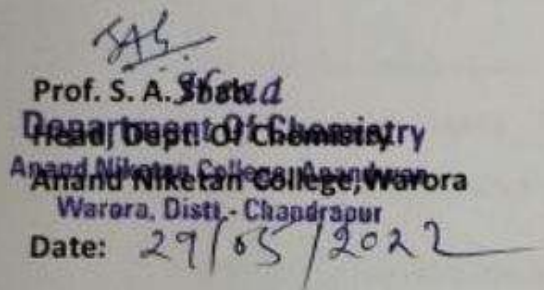 Prof. S. A. Shah
Head
Head, Dept. Of Chemistry
Department Of Chemistry
Anand Niketan College, Warora
Anand Niketan College, Anandwan
Warora, Distt.- Chandrapur
Date: 29/05/2022